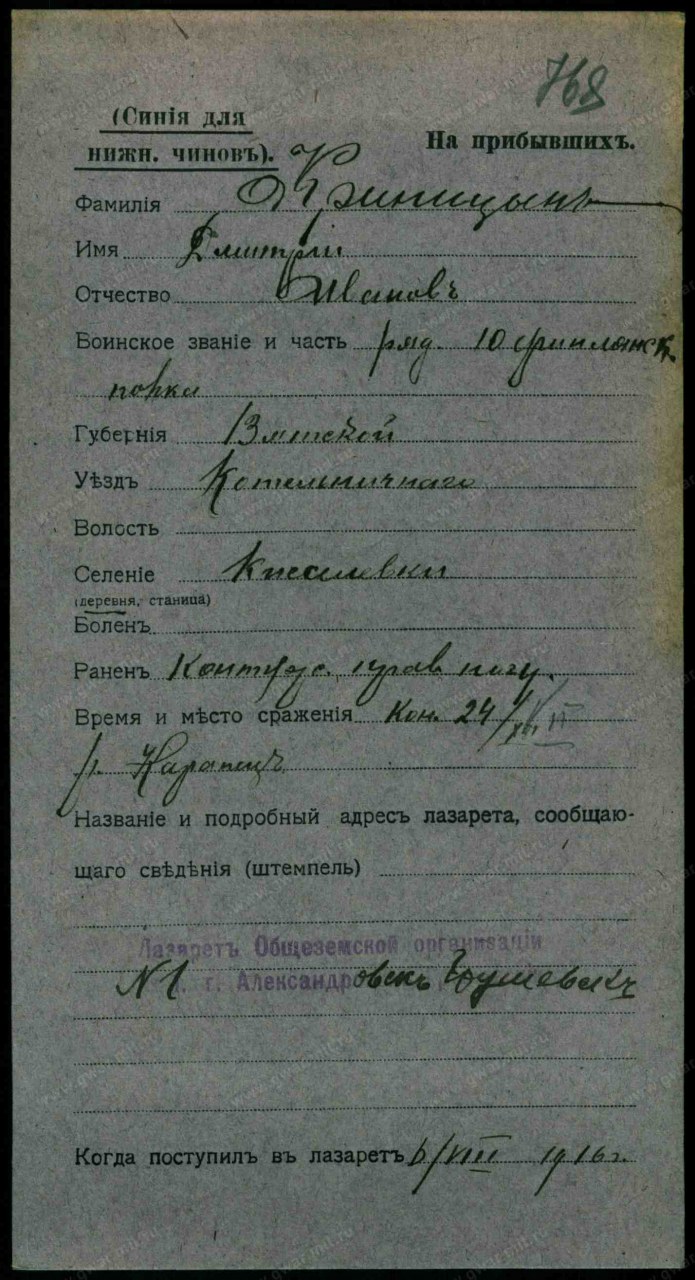 768
(Синія для
нижн. чиновъ).
На прибывшихъ.
Фамилія Криницынъ
Имя Дмитрій
Отчество Ивановъ
Воинское званіе и часть ряд. 10 финляндск.
полка
Губернія Вятской
Уѣздъ Котельничнаго
Волость
Селеніе Киселевки
(деревня, станица)
Боленъ
Раненъ Контуз. прав ногу.
Время и мѣсто сраженія кон. 24/
р.
Названіе и подробный адресъ лазарета, сообщаю-
щаго свѣдѣнія (штемпель)
Лазаретъ Общеземской организаціи
№1 г. Александровскъ Грушевскъ
Когда поступилъ въ лазаретъ 6/VIII 1916 г.